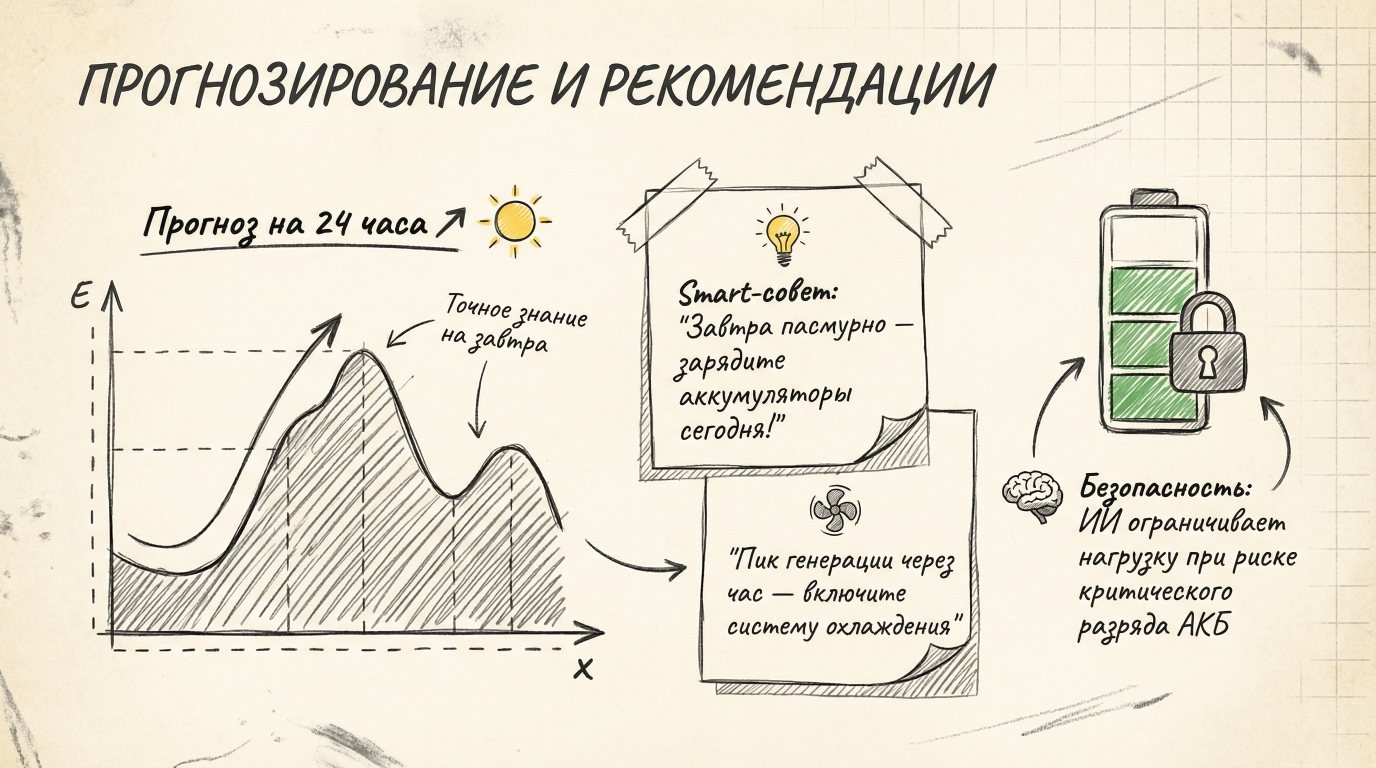 ПРОГНОЗИРОВАНИЕ И РЕКОМЕНДАЦИИ
Прогноз на 24 часа
E
Точное знание
на завтра
x
Smart-совет:
"Завтра пасмурно —
зарядите
аккумуляторы
сегодня!"
"Пик генерации через
час — включите
систему охлаждения"
Безопасность:
ИИ ограничивает
нагрузку при риске
критического
разряда АКБ